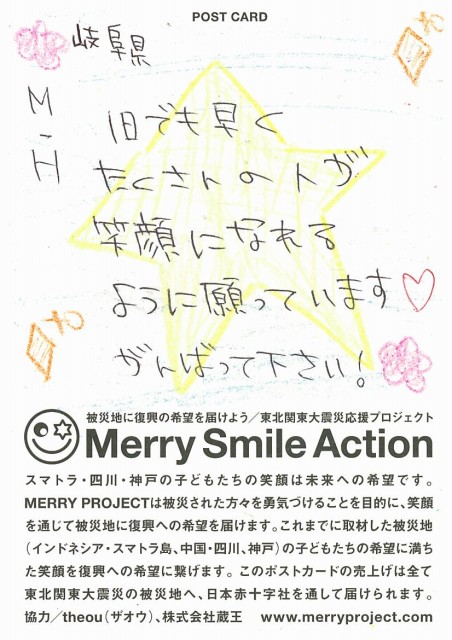 POST CARD
岐阜県
M-H
1日でも早く
たくさんの人が
笑顔になれる
ように願っています♡
がんばって下さい!
被災地に復興の希望を届けよう/東北関東大震災応援プロジェクト
Merry Smile Action
スマトラ・四川・神戸の子どもたちの笑顔は未来への希望です。
MERRY PROJECTは被災された方々を勇気づけることを目的に、笑顔
を通じて被災地に復興への希望を届けます。これまでに取材した被災地
(インドネシア・スマトラ島、中国・四川、神戸)の子どもたちの希望に満ち
た笑顔を復興への希望に繋げます。このポストカードの売上げは全て
東北関東大震災の被災地へ、日本赤十字社を通して届けられます。
協力/theou(ザオウ)、株式会社蔵王 www.merryproject.com